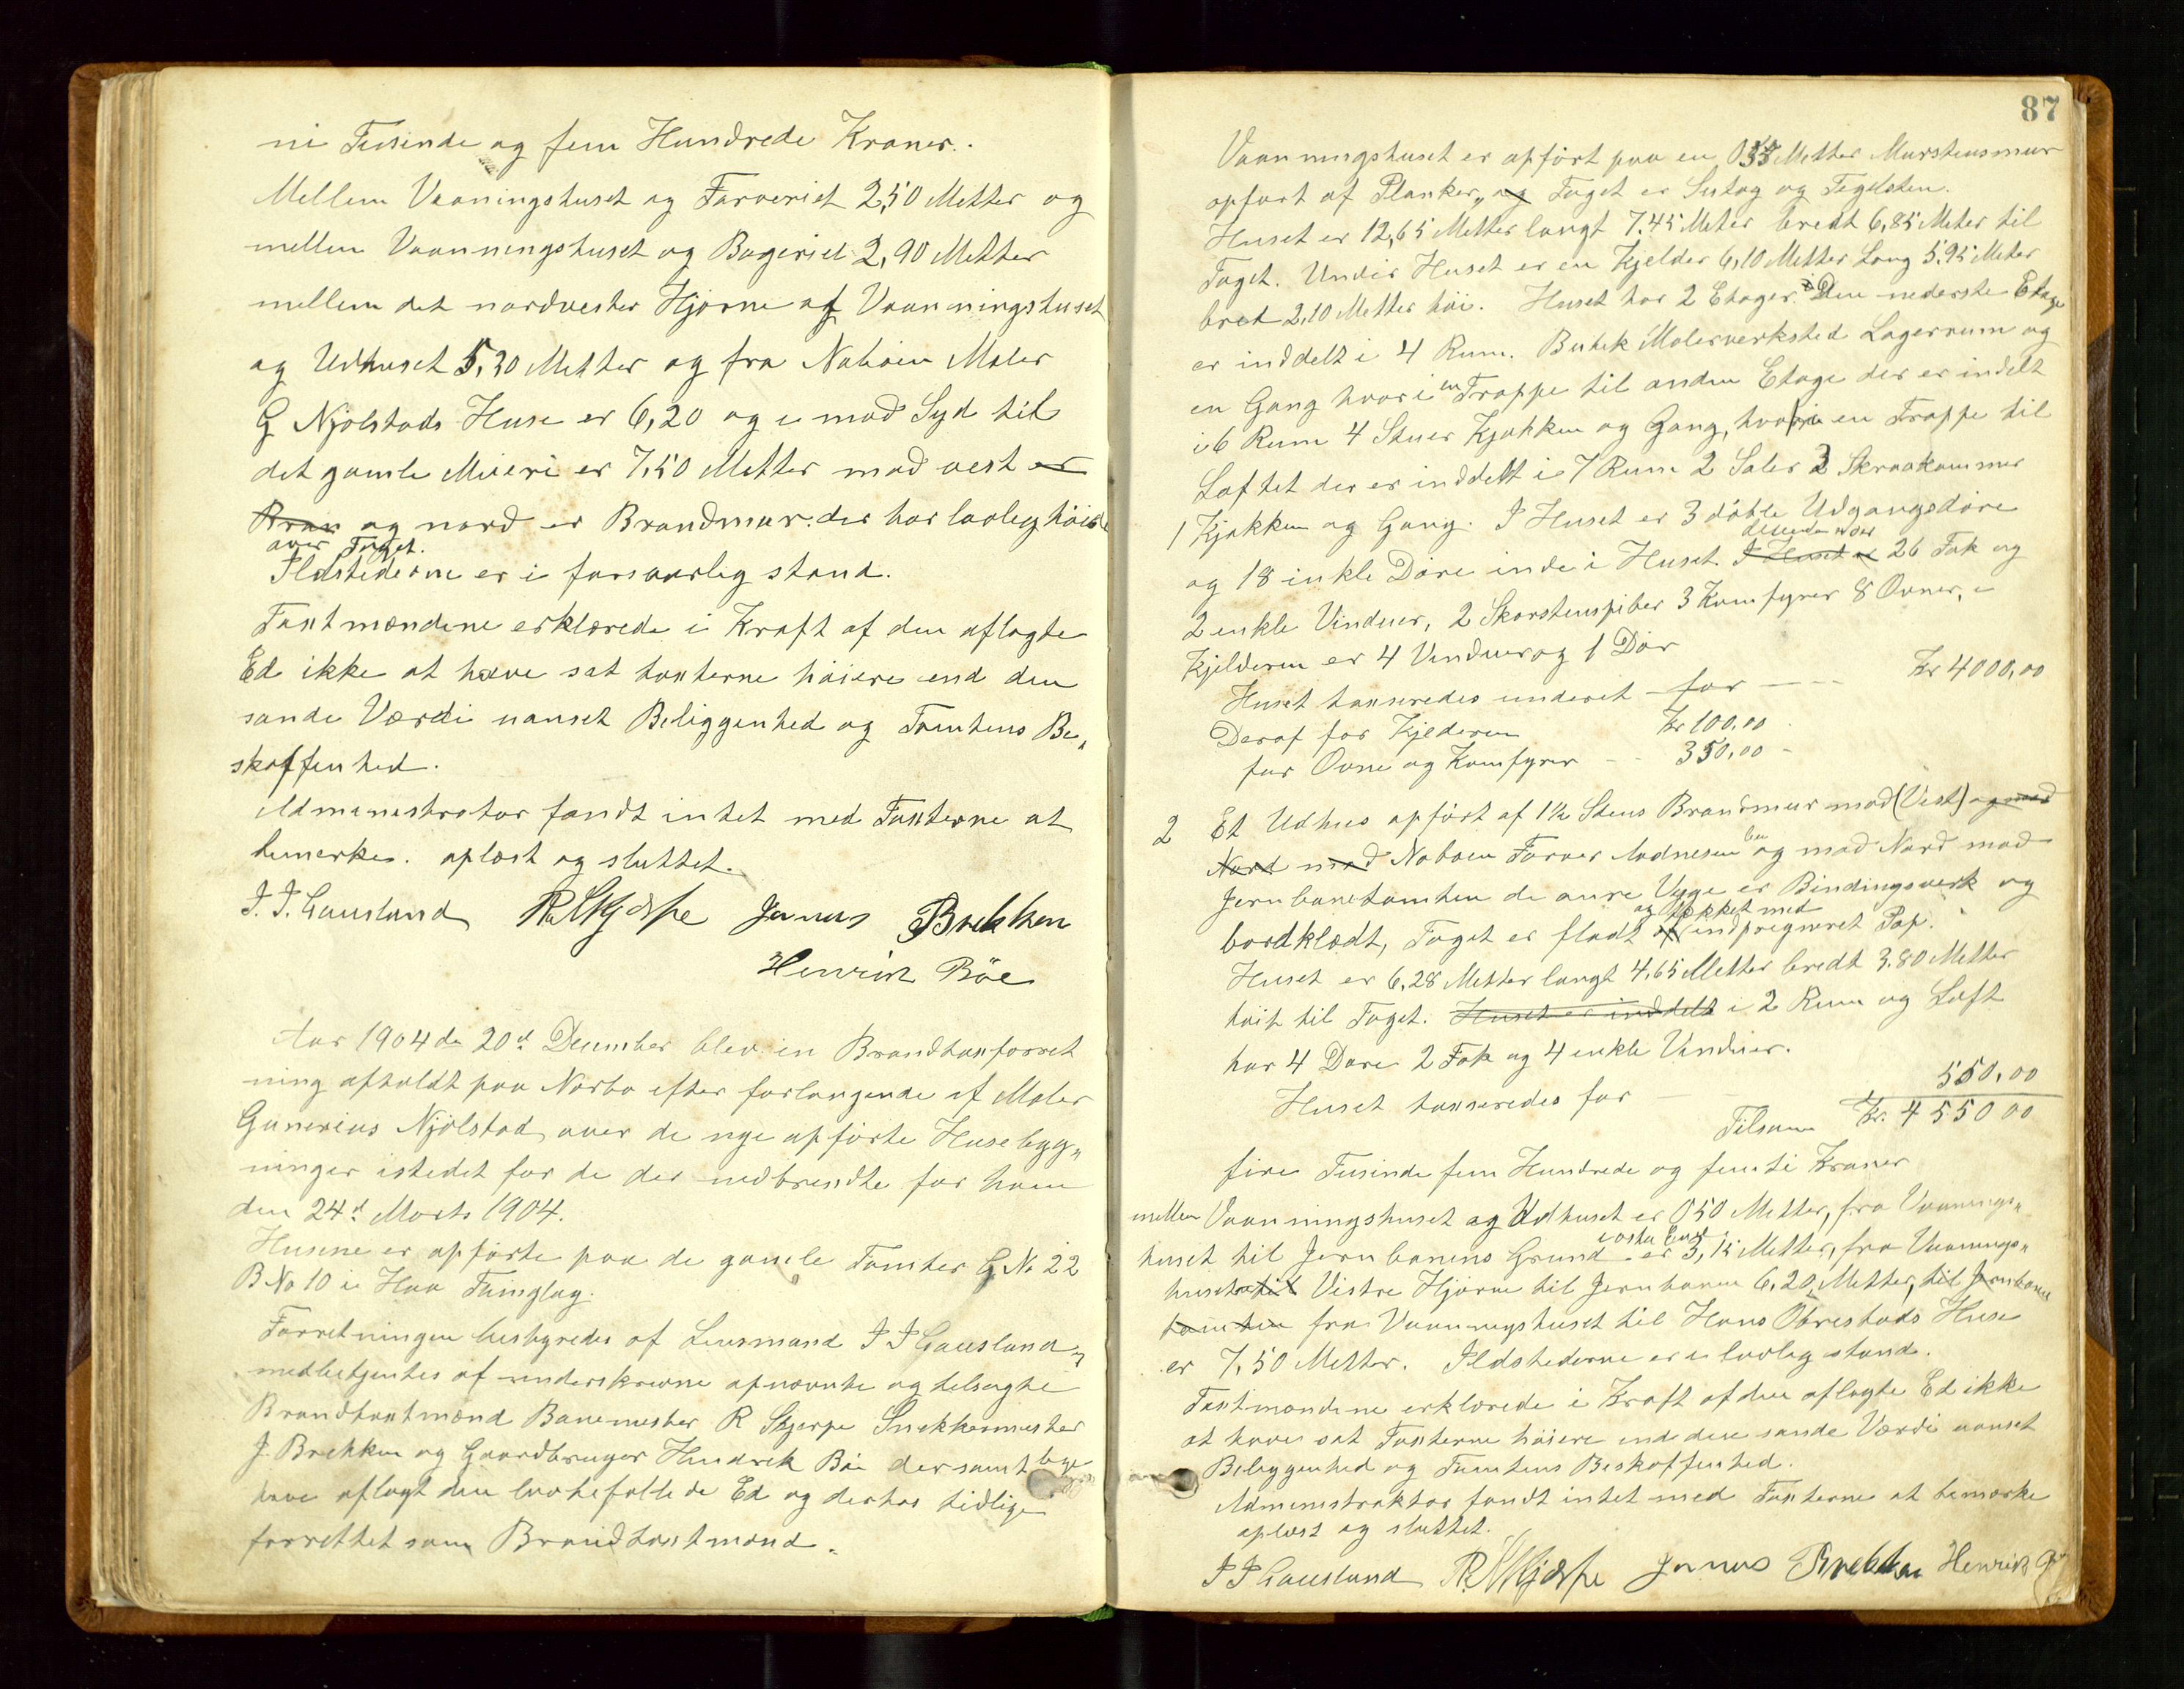 ni Tusinde og fem Hundrede Kroner.
Mellem Vaaningshuset og Farveriet 2,50 Metter og
mellem Vaanningshuset og Bageriet 2,90 Metter
mellem det nordvester Hjörne af Vaanningshuset
og Udhuset 5,30 Metter og fra Naboen Maler
G Njölstads Huse er 6,20 og i mod Syd til
det gamle Mieri er 7,50 Metter mod vest er
Bran og nord er Brandmur der har lovlig höide
over Taget.
Ildstederne er i forsvarlig stand.
Taxtmændene erklærede i Kraft af den aflagte
Ed ikke at have sat taxterne höiere end den
sande Værdi uanset Beliggenhed og Tomtens Be„
skaffenhed.
Administrator fandt intet med Taxterne at
bemerke. oplæst og sluttet.
J. J. Gausland R Skjerpe Jonas Brekken
Henrik Böe
Aar 1904 de 20d December blev en Brandtaxforret
ning afholdt paa Nærbo efter forlangende af Maler
Gunerius Njölstad over de nye opförte Husebyg„
ninger istedet for de der nedbrendte for ham
den 24d Marts 1904.
Husene er opförte paa de gamle Tomter G No 22
B No 10 i Haa Thinglag.
Forretningen bestyredes af Lensmand J J Gausland
medbetjentes af underskrevne opnævnte og tilsagte
Brandtaxtmænd Banemester R Skjerpe Snekkermester
J. Brekken og Gaardbruger Hendrek Böe der samtlige
have aflagt den lovbefallede Ed og derhos tidlige
forrettet som Brandtaxtmænd.
87
Vaanningshuset er opfört paa en 0,55 Metter Murstensmur
opfört af Planker, og Taget er Sutag og Tegelsten.
Huset er 12,65 Metter langt 7.45 Meter bredt 6,85 Meter til
Taget. Under Huset er en Kjelder 6,10 Metter Lang 5.95 Meter
bret 2,10 Metter höi. Huset har 2 Etager. Den nederste Etage
er inddelt i 4 Rum. Butik Malerverksted Lagerrum og
en Gang hvori en Trappe til anden Etage der er indelt
i 6 Rum 4 Stuer Kjøkken og Gang, hvori en Trappe til
Loftet der er inddelt i 7 Rum 2 Saler 3 Skraakammer
1 Kjøkken og Gang. I Huset er 3 dóble Udgangsdöre
og 18 inkle Döre inde i Huset. I Huset er desuden 26 Fak og
2 enkle Vinduer, 2 Skorstenspiber 3 Komfyrer 8 Ovner, i
Kjelderen er 4 Vinduer og 1 Dör
Huset taxseredes underet for Kr 4000,00
Deraf for Kjederen Kr 100,00
for Ovne og Komfyrer 350,00
2 Et Udhus opfört af 1½ Stens Brandmur mod (Vest) og mod
Nord mod Naboen Farver Aadnesen og mod Nord mod
Jernbanetomten de anre Vege er Bindingsverk og
bordklædt, Taget er fladt og tækket med indpregneret Pap.
Huset er 6,28 Metter langt 4,65 Metter bredt 3.80 Metter
höit til Taget. Huset er inddelt i 2 Rum og Loft
har 4 Döre 2 Fak og 4 enkle Vinduer.
Huset taxseredes for 550,00
Tilsamen Kr. 4 550 00
fire Tusinde fem Hundrede og femti Kroner
mellem Vaanningshuset og Udhuset er 0 50 Metter, fra Vaanings„
huset til Jernbanens Grund er 3,15 Metter, fra Vaanings„
husets til Vestre Hjörne til Jernbanen 6,20 Metter, til Jernbane
tomten fra Vaanningshuset til Hans Obrestads Huse
er 7,50 Metter. Ildstederne er i lovlig stand.
Taxtmændene erklærede i Kraft af den aflagte Ed ikke
at have sat Taxterne höiere end den sande Værdi uanset
Beliggenhed og Tomtens Beskaffenhed.
Administraktor fandt intet med Taxterne at bemærke
oplæst og sluttet.
J J Gausland R. Skjerpe Jonas Brekken Henrik